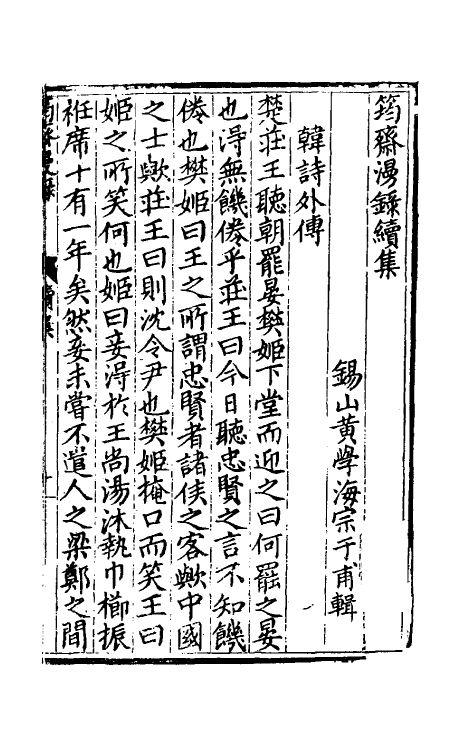 筠齋漫錄續集
錫山黄學海宗于甫輯
韓詩外傳
楚莊王聽朝罷晏樊姬下堂而迎之曰何罷之晏
也淂無饑倦乎莊王曰今日聽忠賢之言不知饑
倦也樊姬曰王之所謂忠賢者諸侯之客歟中國
之士歟莊王曰則沈令尹也樊姬掩口而笑王曰
姬之所笑何也姬曰妾淂於王尚湯沐執巾櫛振
袵席十有一年矣然妾未嘗不遣人之梁鄭之間